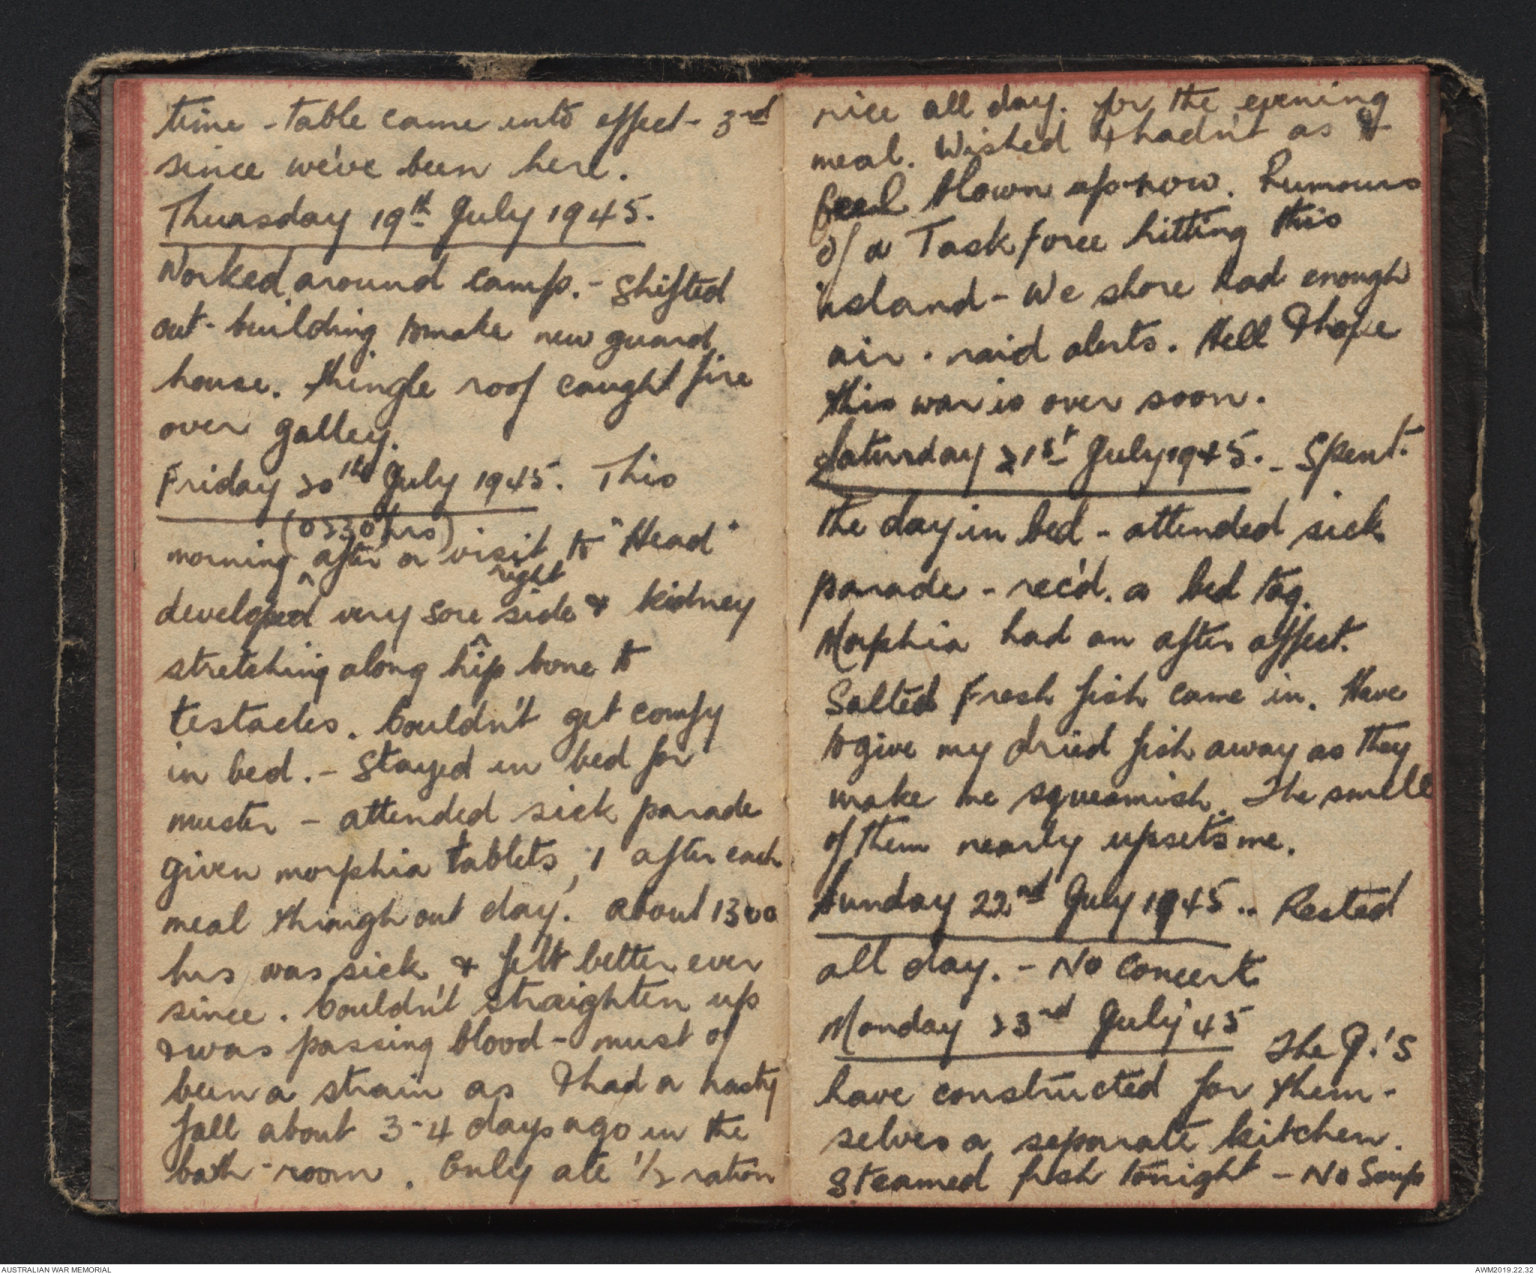 time - table came into effect - 3rd
since we've been here.
Thursday 19th July 1945.
Worked around camp. - Shifted
out - building to make new guard
house. Shingle roof caught fire
over galley.
Friday 20th July 1945. This
(0230 hrs)
morning ^ after a visit to "Head"
right
developed very sore ^ side & kidney
stretching along hip bone to
testacles. Couldn't get comfy
in bed. - Stayed in bed for
muster - attended sick parade
given morphia tablets, 1 after each
meal through out day. about 1300
hrs was sick & felt better ever
since. Couldn't straighten up
& was passing blood - must of
been a strain as I had a nasty
fall about 3-4 days ago in the
bath - room. Only ate 1/2 ration
rice all day. for the evening
meal. Wished I hadn't as I
feel blown up now. Rumours
of a Task force hitting this
island - We shore had enough
air - raid alerts. Hell I hope
this war is over soon.
Saturday 21st July 1945. - Spent
the day in bed - attended sick
parade - rec'd. a bed tag.
Morphia had an after affect.
Salted Fresh fish came in. Have
to give my dried fish away as they
make me squeamish. The smell
of them nearly upsets me.
Sunday 22nd July 1945.. Rested
all day. - No Concert
Monday 23rd July '45
The J.'s
have constructed for them-
selves a separate kitchen.
Steamed fish tonight - No Soup
AUSTRALIAN WAR MEMORIAL
AWM2019.22.32